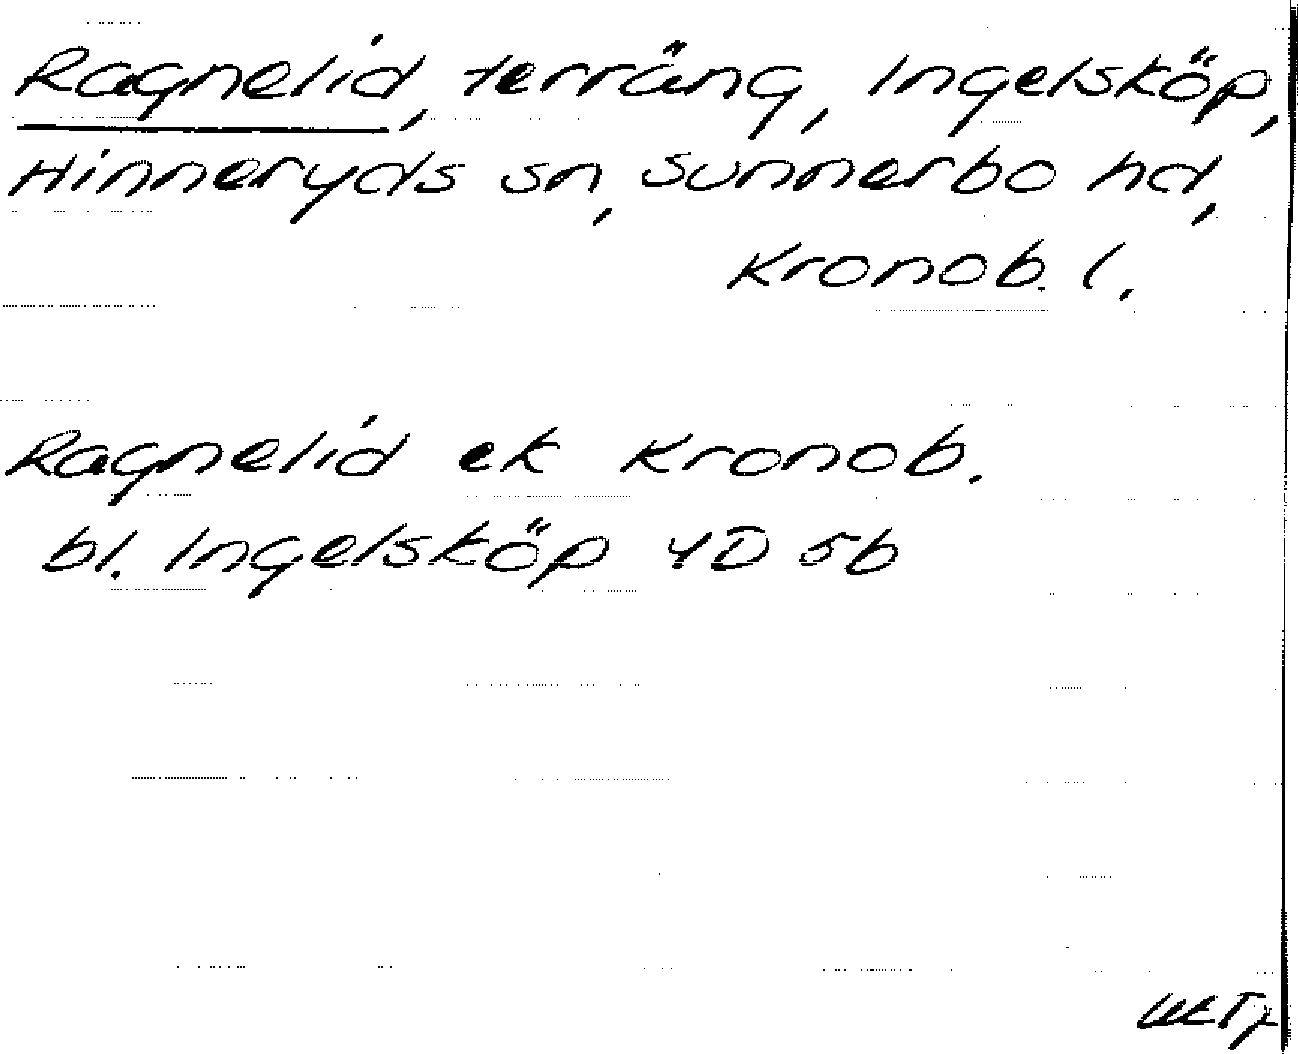 Ragnelid, terräng, Ingelsköp,
Hinneryds sn, Sunnerbo hd,
Kronob. l.
Ragnelid ek Kronob.
bl. Ingelsköp 4D 5b